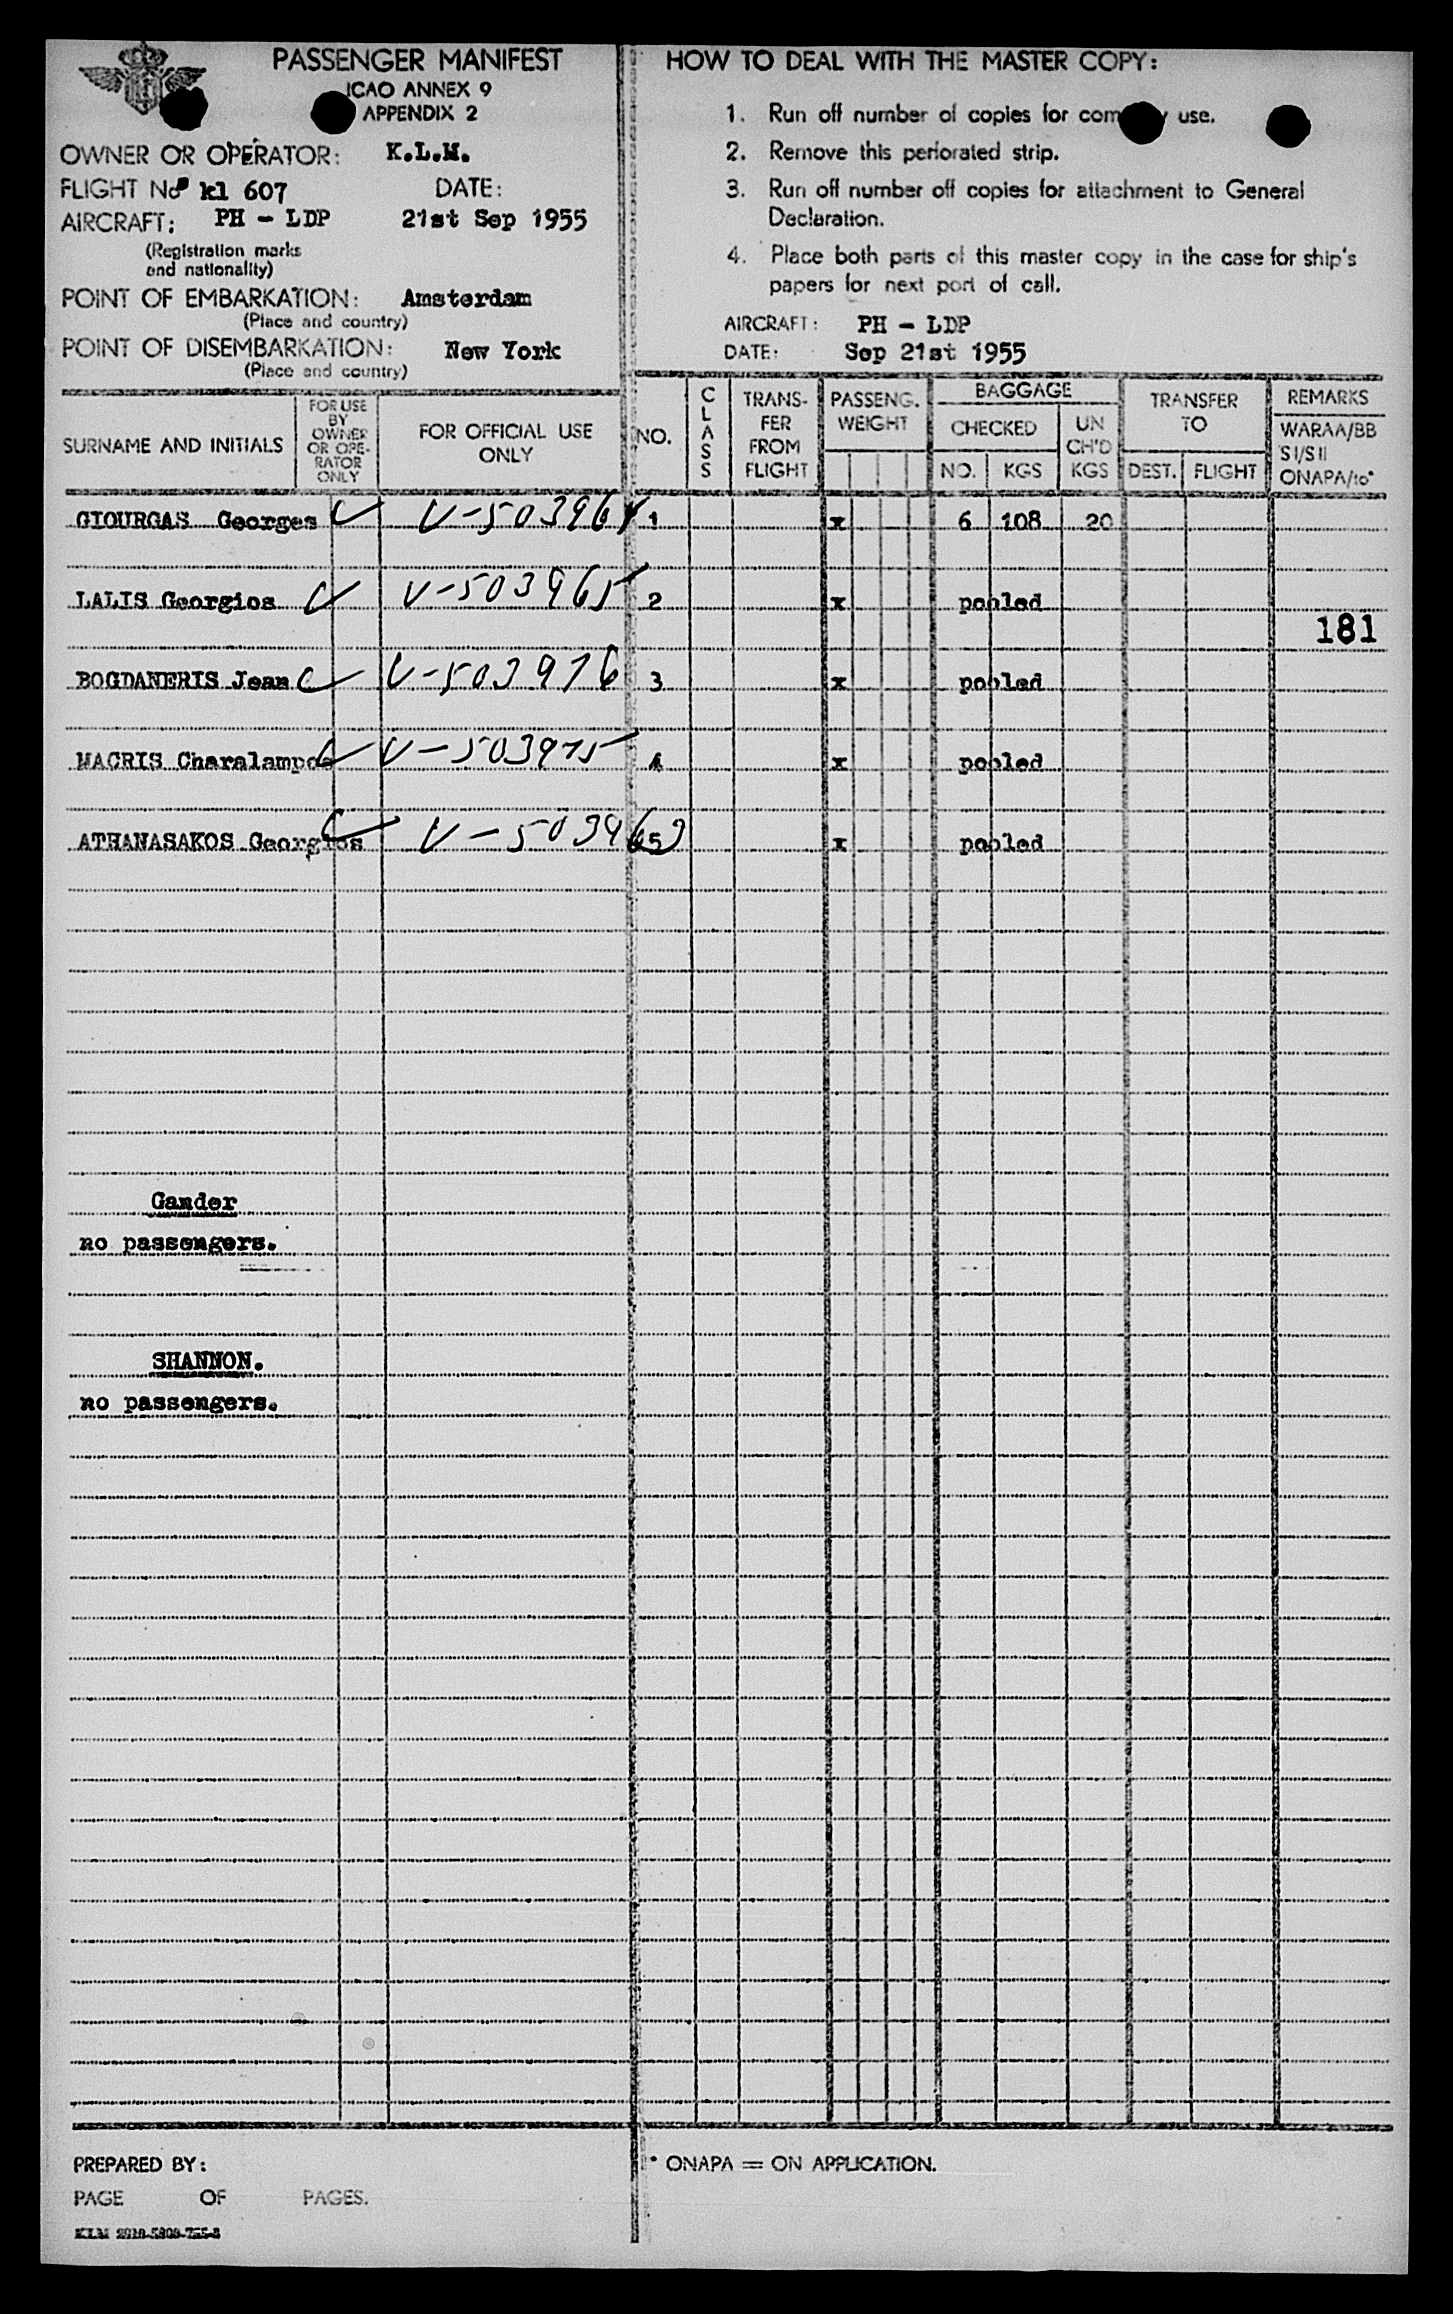 PASSENGER MANIFEST
ICAO ANNEX 9
APPENDIX 2
OWNER OR OPERATOR: K.L.M.
FLIGHT No kl 607 DATE:
AIRCRAFT: PH - LDP 21st Sep 1955
(Registration marks
and nationality)
POINT OF EMBARKATION: Amsterdam
(Place and country)
POINT OF DISEMBARKATION: New York
(Place and country)
HOW TO DEAL WITH THE MASTER COPY:
1. Run off number of copies for use.
2. Remove this perforated strip.
3. Run off number off copies for attachment to General
Declaration.
4. Place both parts of this master copy in the case for ship's
papers for next port of call.
AIRCRAFT: PH - LDP
DATE: Sep 21st 1955
SURNAME AND INITIALS
FOR USE
BY
OWNER
OR OPE-
RATOR
ONLY
FOR OFFICIAL USE
ONLY
NO.
CLASS
TRANS-
FER
FROM
FLIGHT
PASSENG.
WEIGHT
BAGGAGE
CHECKED
NO. KGS
UN
CH'D
KGS
TRANSFER
TO
DEST. FLIGHT
REMARKS
WARAA/BB
SI/SII
ONAPA/to*
GIOURGAS Georges V-503964 1 x 6 108 20
LALIS Georgios V-503965 2 x pooled
181
BOGDANERIS Jean V-503976 3 x pooled
MACRIS Charalampos V-503975 4 x pooled
ATHANASAKOS Georgios V-503963 5 x pooled
Gander
no passengers.
SHANNON.
no passengers.
PREPARED BY:
* ONAPA = ON APPLICATION.
PAGE OF PAGES.
KLM